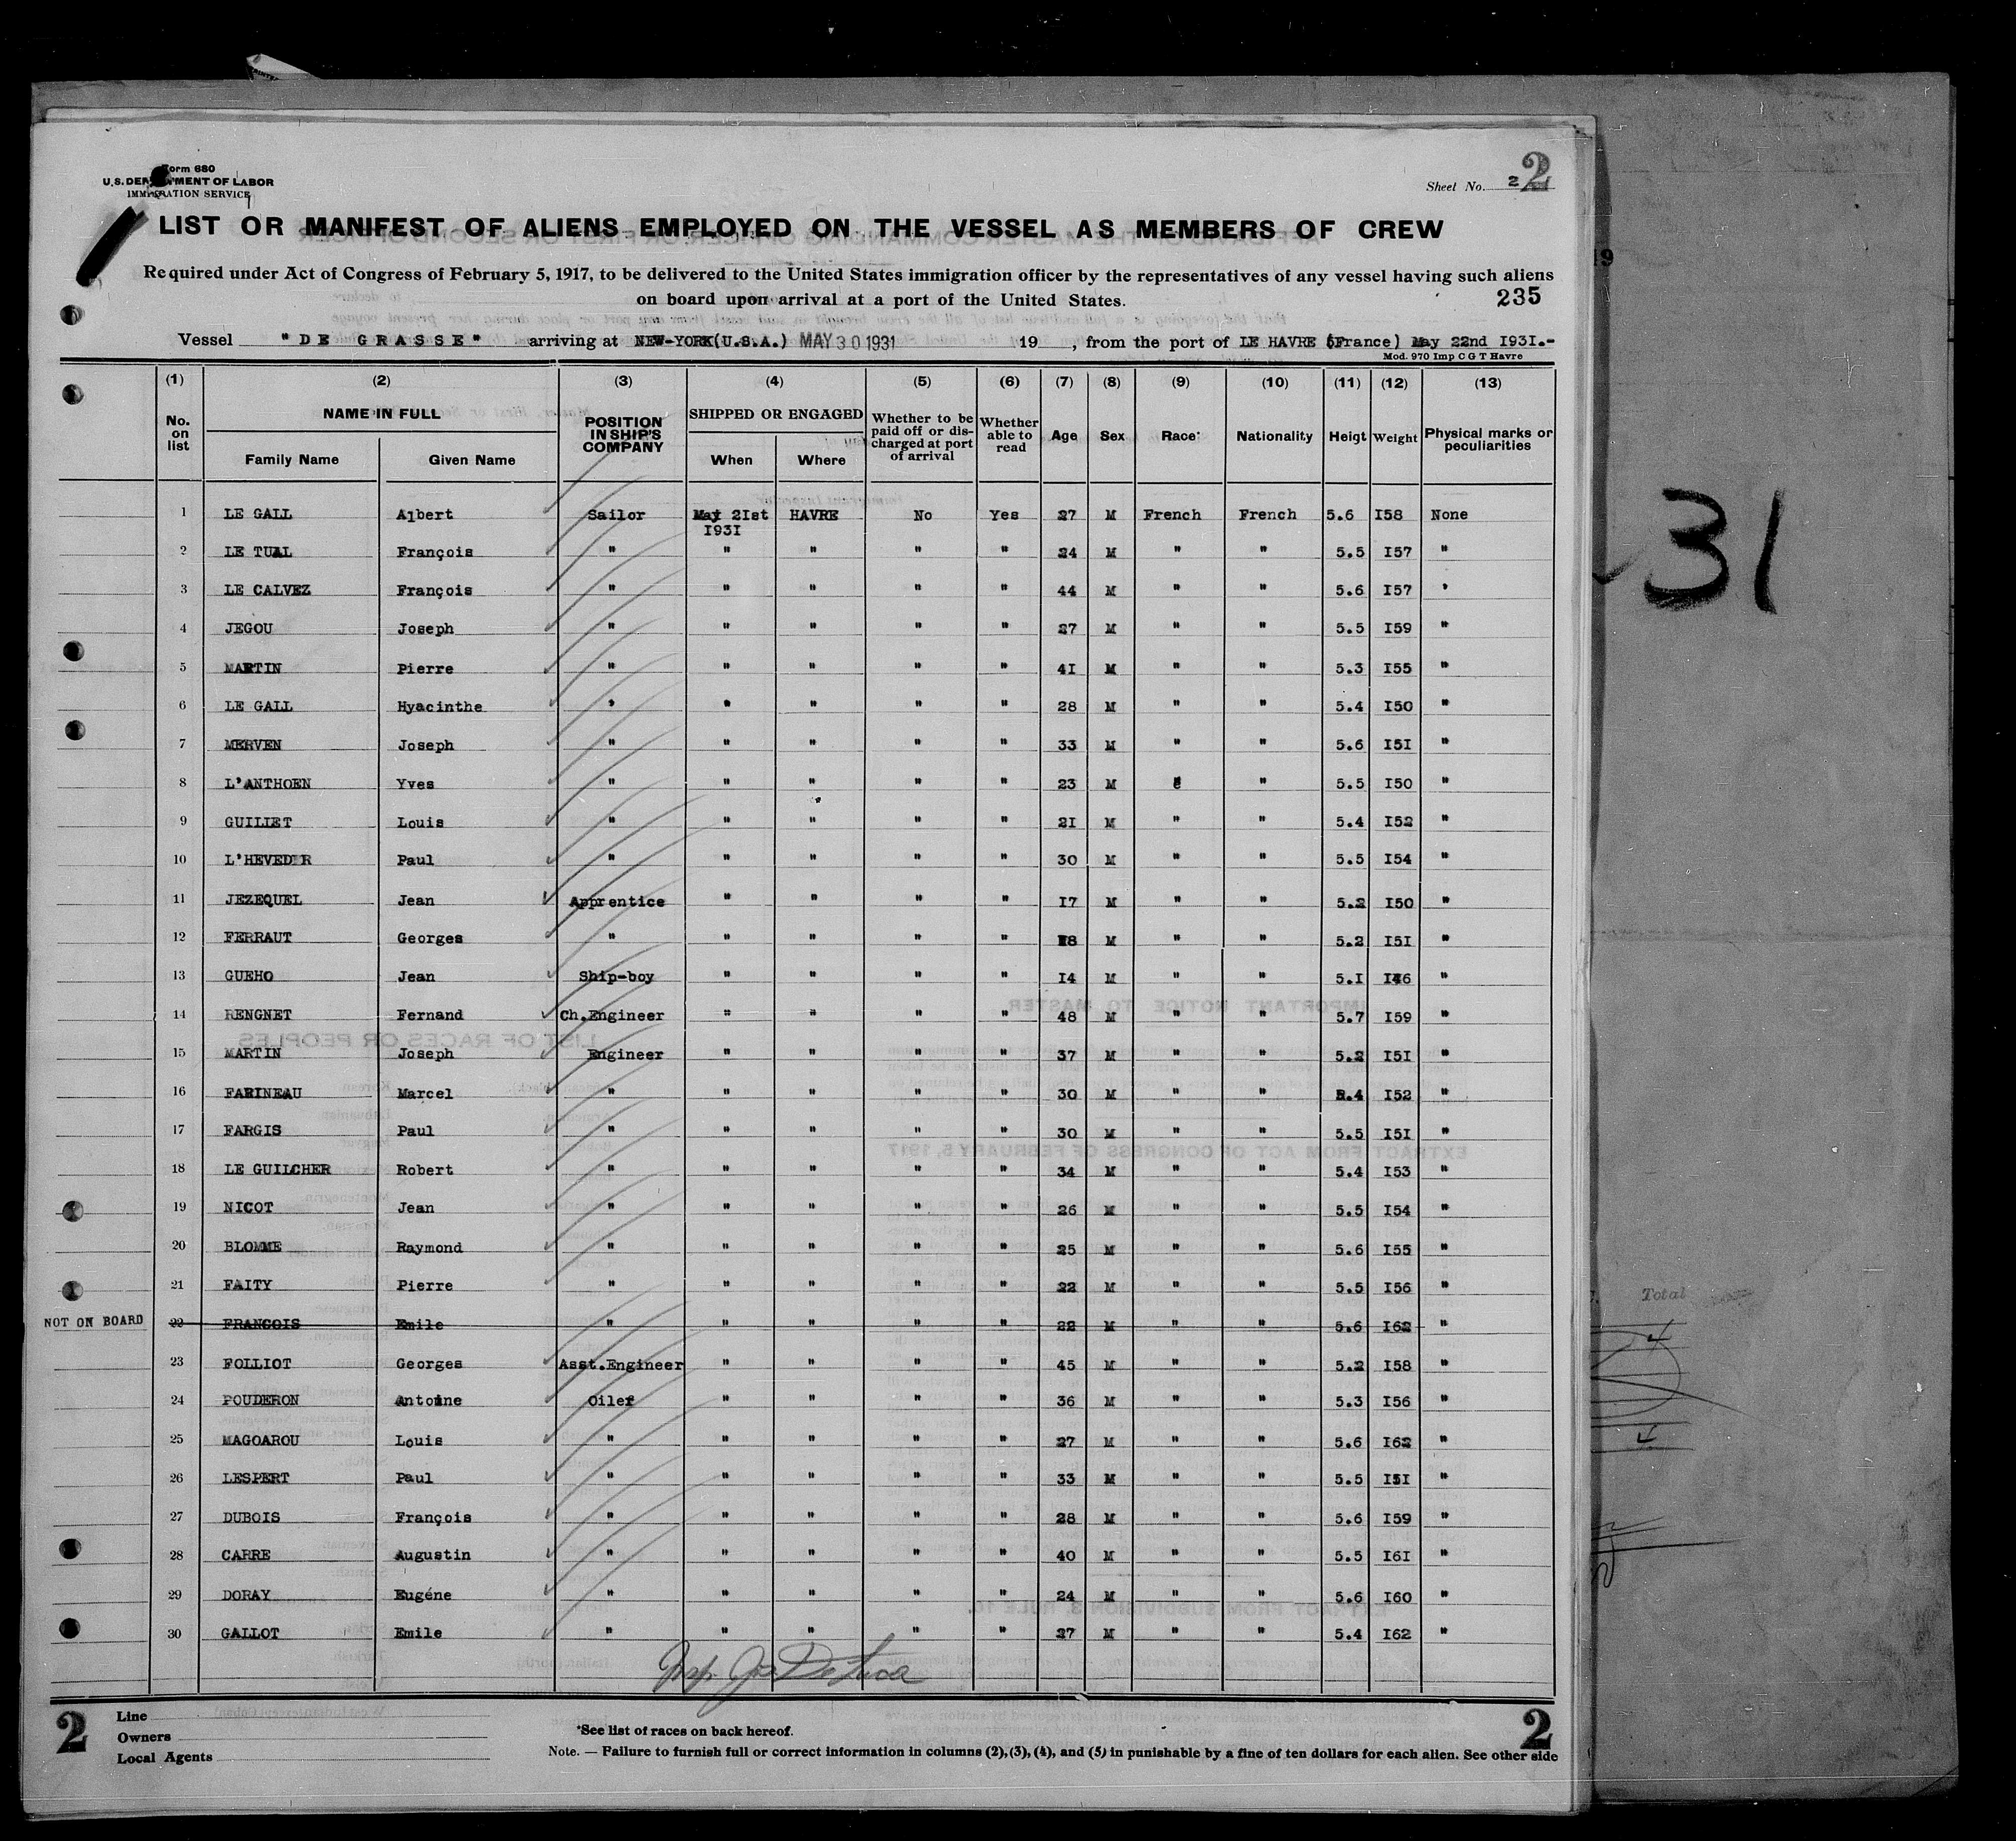 Form 680
U.S. DEPARTMENT OF LABOR
IMMIGRATION SERVICE
Sheet No. 2 2
LIST OR MANIFEST OF ALIENS EMPLOYED ON THE VESSEL AS MEMBERS OF CREW
Required under Act of Congress of February 5, 1917, to be delivered to the United States immigration officer by the representatives of any vessel having such aliens
on board upon arrival at a port of the United States.
235
Vessel "DE GRASSE" arriving at NEW-YORK(U.S.A.) MAY 30 1931 19 , from the port of LE HAVRE (France) May 22nd I93I.-
Mod. 970 Imp C G T Havre
(1) (2) (3) (4) (5) (6) (7) (8) (9) (10) (11) (12) (13)
No. on list NAME IN FULL Family Name Given Name POSITION IN SHIP'S COMPANY SHIPPED OR ENGAGED When Where Whether to be paid off or discharged at port of arrival Whether able to read Age Sex Race* Nationality Heigt Weight Physical marks or peculiarities
1 LE GALL Albert Sailor May 2Ist I93I HAVRE No Yes 27 M French French 5.6 I58 None
2 LE TUAL François " " " " " 24 M " " 5.5 I57 "
3 LE CALVEZ François " " " " " 44 M " " 5.6 I57 '
4 JEGOU Joseph " " " " " 27 M " " 5.5 I59 "
5 MARTIN Pierre " " " " " 4I M " " 5.3 I55 "
6 LE GALL Hyacinthe " " " " " 28 M " " 5.4 I50 "
7 MERVEN Joseph " " " " " 33 M " " 5.6 I5I "
8 L'ANTHOEN Yves " " " " " 23 M " " 5.5 I50 "
9 GUILLET Louis " " " " " 2I M " " 5.4 I52 "
10 L'HEVEDER Paul " " " " " 30 M " " 5.5 I54 "
11 JEZEQUEL Jean Apprentice " " " " I7 M " " 5.2 I50 "
12 FERRAUT Georges " " " " " I8 M " " 5.2 I5I "
13 GUEHO Jean Ship-boy " " " " I4 M " " 5.I I46 "
14 RENGNET Fernand Ch.Engineer " " " " 48 M " " 5.7 I59 "
15 MARTIN Joseph Engineer " " " " 37 M " " 5.2 I5I "
16 FARINEAU Marcel " " " " " 30 M " " 5.4 I52 "
17 FARGIS Paul " " " " " 30 M " " 5.5 I5I "
18 LE GUILCHER Robert " " " " " 34 M " " 5.4 I53 "
19 NICOT Jean " " " " " 26 M " " 5.5 I54 "
20 BLOMME Raymond " " " " " 25 M " " 5.6 I55 "
21 FAITY Pierre " " " " " 22 M " " 5.5 I56 "
NOT ON BOARD 22 FRANCOIS Emile " " " " " 22 M " " 5.6 I62 "
23 FOLLIOT Georges Asst.Engineer " " " " 45 M " " 5.2 I58 "
24 POUDERON Antoine Oiler " " " " 36 M " " 5.3 I56 "
25 MAGOAROU Louis " " " " " 27 M " " 5.6 I62 "
26 LESPERT Paul " " " " " 33 M " " 5.5 I5I "
27 DUBOIS François " " " " " 28 M " " 5.6 I59 "
28 CARRE Augustin " " " " " 40 M " " 5.5 I6I "
29 DORAY Eugéne " " " " " 24 M " " 5.6 I60 "
30 GALLOT Emile " " " " " 27 M " " 5.4 I62 "
Insp. Jos De Luca
2 Line
Owners
Local Agents
*See list of races on back hereof.
2
Note. — Failure to furnish full or correct information in columns (2), (3), (4), and (5) in punishable by a fine of ten dollars for each alien. See other side
19
31
Total